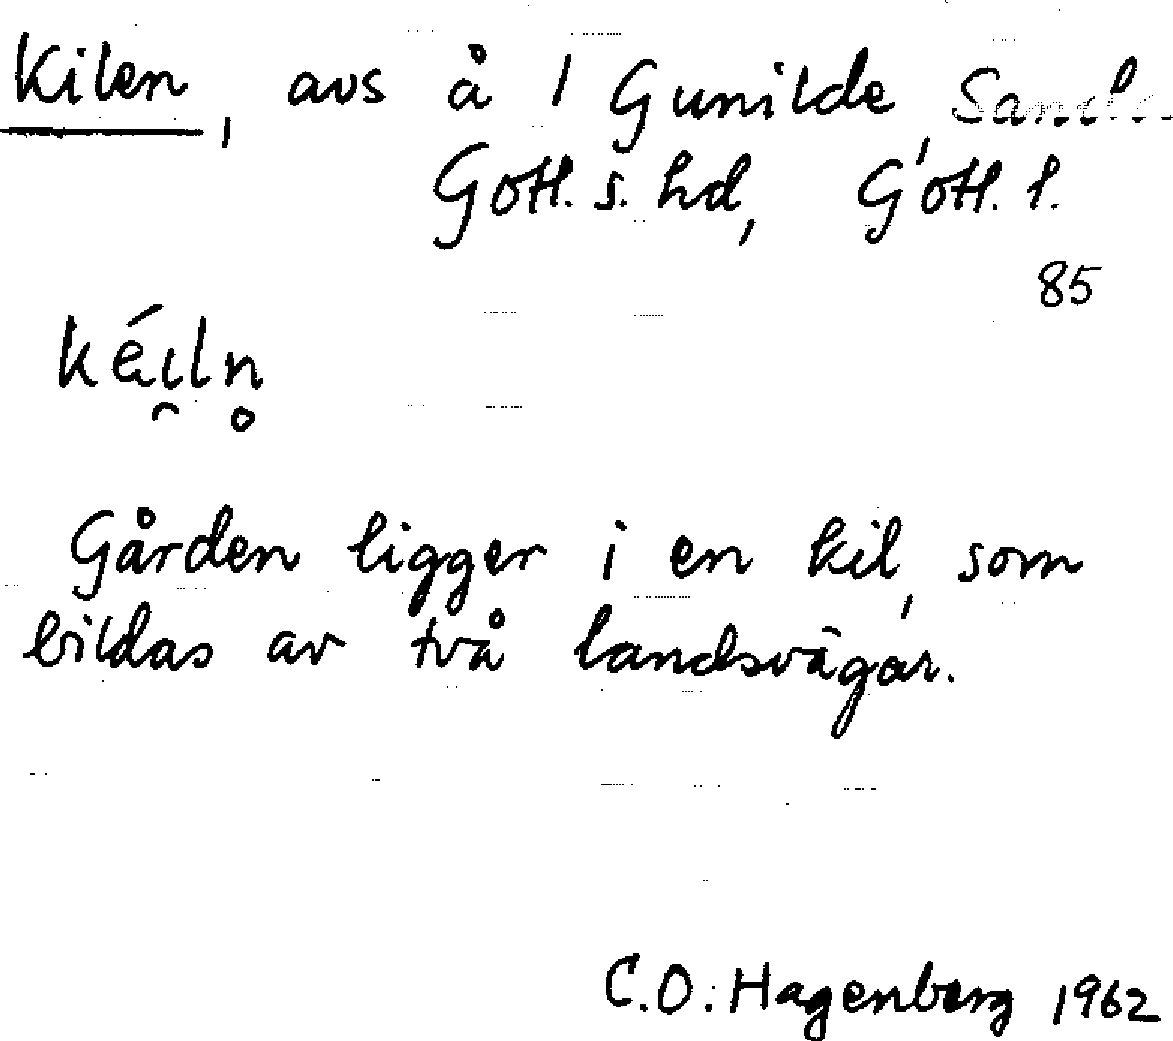 Kilen, avs å 1 Gunilde,
Gotl. s. hd, Gotl. l.
85
kéi̯ln̥
Gården ligger i en kil, som
bildas av två landsvägar.
C.O. Hagenberg 1962